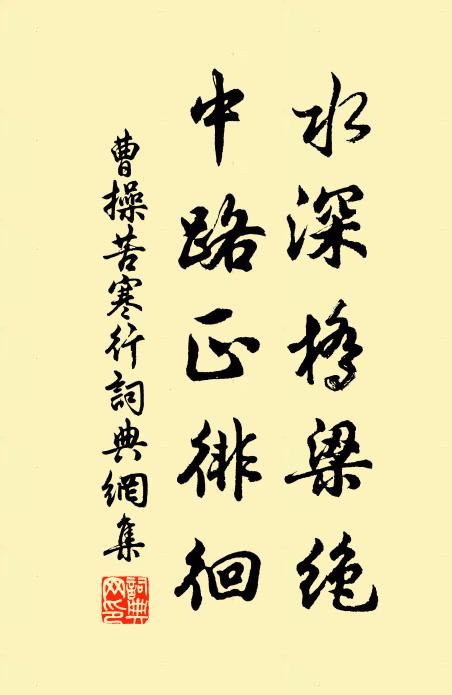 水深橋梁絶
中路正徘徊
曹操苦寒行詞典網集
詞典網印